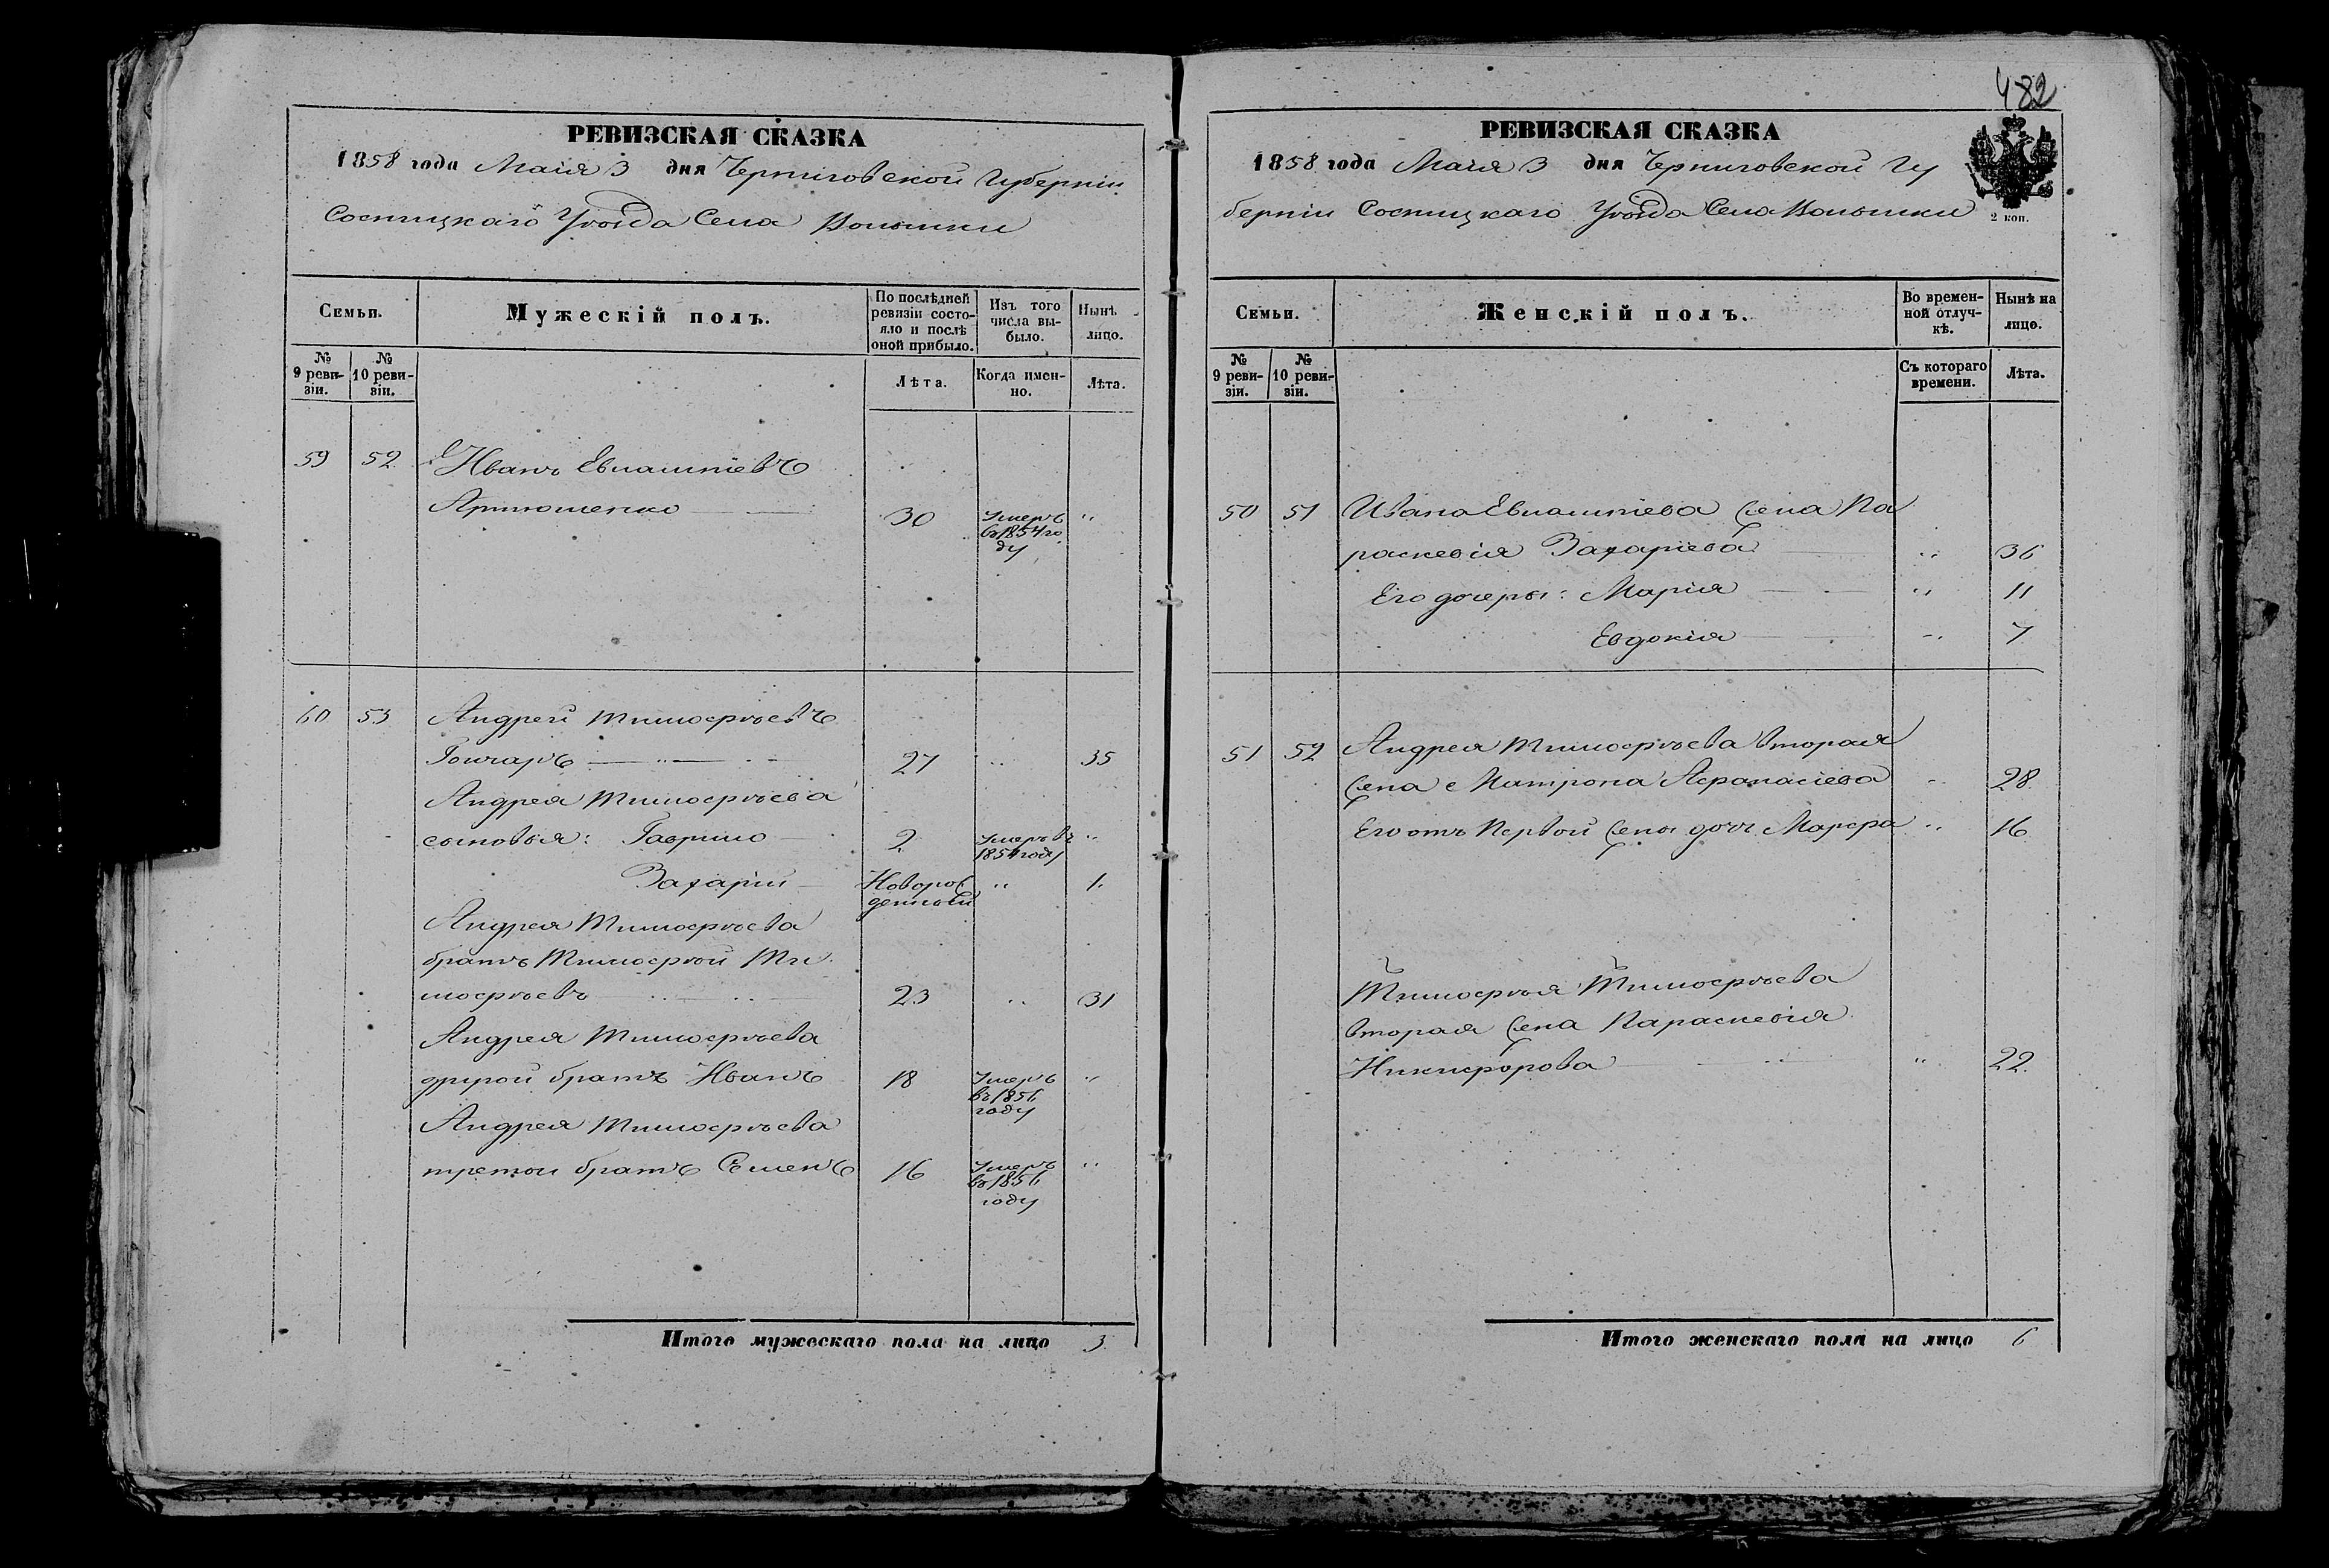 РЕВИЗСКАЯ СКАЗКА
1858 года Маія 3 дня Черниговской Губерніи
Сосницкаго Уѣзда Села Волынки
Семьи.
Мужескій полъ.
По послѣдней ревизіи состояло и послѣ оной прибыло.
Изъ того числа выбыло.
Нынѣ лицо.
№ 9 ревизіи.
№ 10 ревизіи.
Лѣта.
Когда именно.
Лѣта.
59 52 Иванъ Евлампіевъ
Артюшенко 30 Умеръ въ 1854 году "
60 53 Андрей Тимофѣевъ
Гончаръ 27 " 35
Андрея Тимофѣева
сыновья: Гаврило 2 Умеръ въ 1854 году "
Захарій Новорожденный " 1
Андрея Тимофѣева
братъ Тимофѣй Ти
мофѣевъ 23 " 31
Андрея Тимофѣева
другой братъ Иванъ 18 Умеръ въ 1856 году "
Андрея Тимофѣева
третой братъ Семенъ 16 Умеръ въ 1856 году "
Итого мужескаго пола на лицо 3
482
РЕВИЗСКАЯ СКАЗКА
1858 года Маія 3 дня Черниговской Гу
берніи Сосницкаго Уѣзда Села Волынки
2 коп.
Семьи.
Женскій полъ.
Во временной отлучкѣ.
Нынѣ на лицо.
№ 9 ревизіи.
№ 10 ревизіи.
Съ котораго времени.
Лѣта.
50 51 Ивана Евлампіева жена Па
раскевія Захаріева " 36
Его дочеры: Марія " 11
Евдокія " 7
51 52 Андрея Тимофѣева вторая
жена Матрона Афанасіева " 28
Его отъ первой жены дочь Марфа " 16
Тимофѣя Тимофѣева
вторая жена Параскевія
Никифорова " 22
Итого женскаго пола на лицо 6